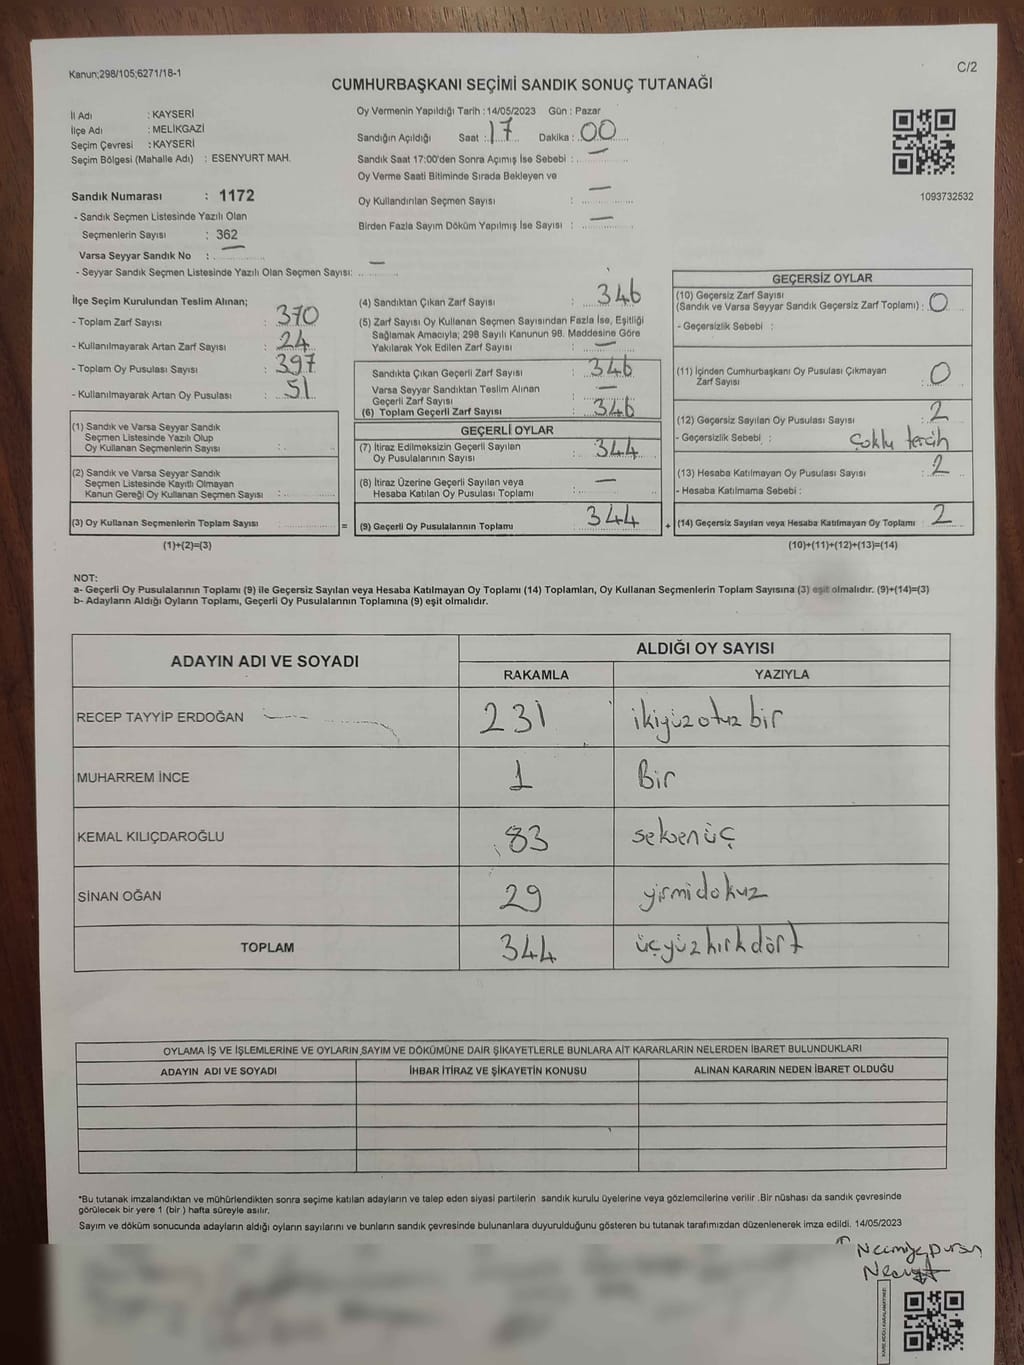 Kanun;298/105;6271/18-1
C/2
CUMHURBAŞKANI SEÇİMİ SANDIK SONUÇ TUTANAĞI
İl Adı : KAYSERİ
İlçe Adı : MELİKGAZİ
Seçim Çevresi : KAYSERİ
Seçim Bölgesi (Mahalle Adı) : ESENYURT MAH.
Sandık Numarası : 1172
- Sandık Seçmen Listesinde Yazılı Olan
Seçmenlerin Sayısı : 362
Varsa Seyyar Sandık No : —
- Seyyar Sandık Seçmen Listesinde Yazılı Olan Seçmen Sayısı: —
Oy Vermenin Yapıldığı Tarih : 14/05/2023 Gün : Pazar
Sandığın Açıldığı Saat : 17 Dakika : 00
Sandık Saat 17:00'den Sonra Açımış İse Sebebi : —
Oy Verme Saati Bitiminde Sırada Bekleyen ve
Oy Kullandırılan Seçmen Sayısı : —
Birden Fazla Sayım Döküm Yapılmış İse Sayısı : —
1093732532
İlçe Seçim Kurulundan Teslim Alınan;
- Toplam Zarf Sayısı : 370
- Kullanılmayarak Artan Zarf Sayısı : 24
- Toplam Oy Pusulası Sayısı : 397
- Kullanılmayarak Artan Oy Pusulası : 51
(1) Sandık ve Varsa Seyyar Sandık
Seçmen Listesinde Yazılı Olup
Oy Kullanan Seçmenlerin Sayısı :
(2) Sandık ve Varsa Seyyar Sandık
Seçmen Listesinde Kayıtlı Olmayan
Kanun Gereği Oy Kullanan Seçmen Sayısı :
(3) Oy Kullanan Seçmenlerin Toplam Sayısı : =
(1)+(2)=(3)
(4) Sandıktan Çıkan Zarf Sayısı : 346
(5) Zarf Sayısı Oy Kullanan Seçmen Sayısından Fazla İse, Eşitliği
Sağlamak Amacıyla; 298 Sayılı Kanunun 98. Maddesine Göre
Yakılarak Yok Edilen Zarf Sayısı : —
Sandıkta Çıkan Geçerli Zarf Sayısı : 346
Varsa Seyyar Sandıktan Teslim Alınan
Geçerli Zarf Sayısı : —
(6) Toplam Geçerli Zarf Sayısı : 346
GEÇERLİ OYLAR
(7) İtiraz Edilmeksizin Geçerli Sayılan
Oy Pusulalarının Sayısı : 344
(8) İtiraz Üzerine Geçerli Sayılan veya
Hesaba Katılan Oy Pusulası Toplamı : —
(9) Geçerli Oy Pusulalarının Toplamı : 344 +
GEÇERSİZ OYLAR
(10) Geçersiz Zarf Sayısı
(Sandık ve Varsa Seyyar Sandık Geçersiz Zarf Toplamı) : 0
- Geçersizlik Sebebi :
(11) İçinden Cumhurbaşkanı Oy Pusulası Çıkmayan
Zarf Sayısı : 0
(12) Geçersiz Sayılan Oy Pusulası Sayısı : 2
- Geçersizlik Sebebi : Çoklu tercih
(13) Hesaba Katılmayan Oy Pusulası Sayısı : 2
- Hesaba Katılmama Sebebi :
(14) Geçersiz Sayılan veya Hesaba Katılmayan Oy Toplamı : 2
(10)+(11)+(12)+(13)=(14)
NOT:
a- Geçerli Oy Pusulalarının Toplamı (9) ile Geçersiz Sayılan veya Hesaba Katılmayan Oy Toplamı (14) Toplamları, Oy Kullanan Seçmenlerin Toplam Sayısına (3) eşit olmalıdır. (9)+(14)=(3)
b- Adayların Aldığı Oyların Toplamı, Geçerli Oy Pusulalarının Toplamına (9) eşit olmalıdır.
ADAYIN ADI VE SOYADI ALDIĞI OY SAYISI
RAKAMLA YAZIYLA
RECEP TAYYİP ERDOĞAN 231 ikiyüzotuzbir
MUHARREM İNCE 1 Bir
KEMAL KILIÇDAROĞLU 83 seksenüç
SİNAN OĞAN 29 yirmidokuz
TOPLAM 344 üçyüzkırkdört
OYLAMA İŞ VE İŞLEMLERİNE VE OYLARIN SAYIM VE DÖKÜMÜNE DAİR ŞİKAYETLERLE BUNLARA AİT KARARLARIN NELERDEN İBARET BULUNDUKLARI
ADAYIN ADI VE SOYADI İHBAR İTİRAZ VE ŞİKAYETİN KONUSU ALINAN KARARIN NEDEN İBARET OLDUĞU
*Bu tutanak imzalandıktan ve mühürlendikten sonra seçime katılan adayların ve talep eden siyasi partilerin sandık kurulu üyelerine veya gözlemcilerine verilir .Bir nüshası da sandık çevresinde
görülecek bir yere 1 (bir ) hafta süreyle asılır.
Sayım ve döküm sonucunda adayların aldığı oyların sayılarını ve bunların sandık çevresinde bulunanlara duyurulduğunu gösteren bu tutanak tarafımızdan düzenlenerek imza edildi. 14/05/2023